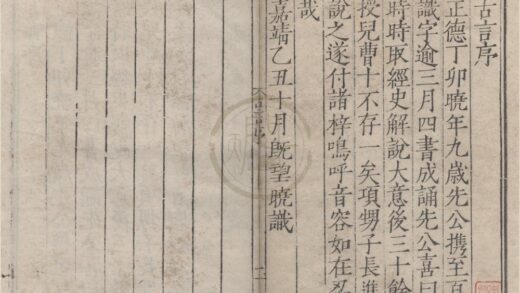 古言序
正德丁卯曉年九歲先公攜至百
識字逾三月四書成誦先公喜曰
時時取經史解說大意後三十餘
授兒曹十不存一矣項甥子長進
說之遂付諸梓嗚呼音容如在忍
哉
嘉靖乙丑十月旣望曉識
古言序
二